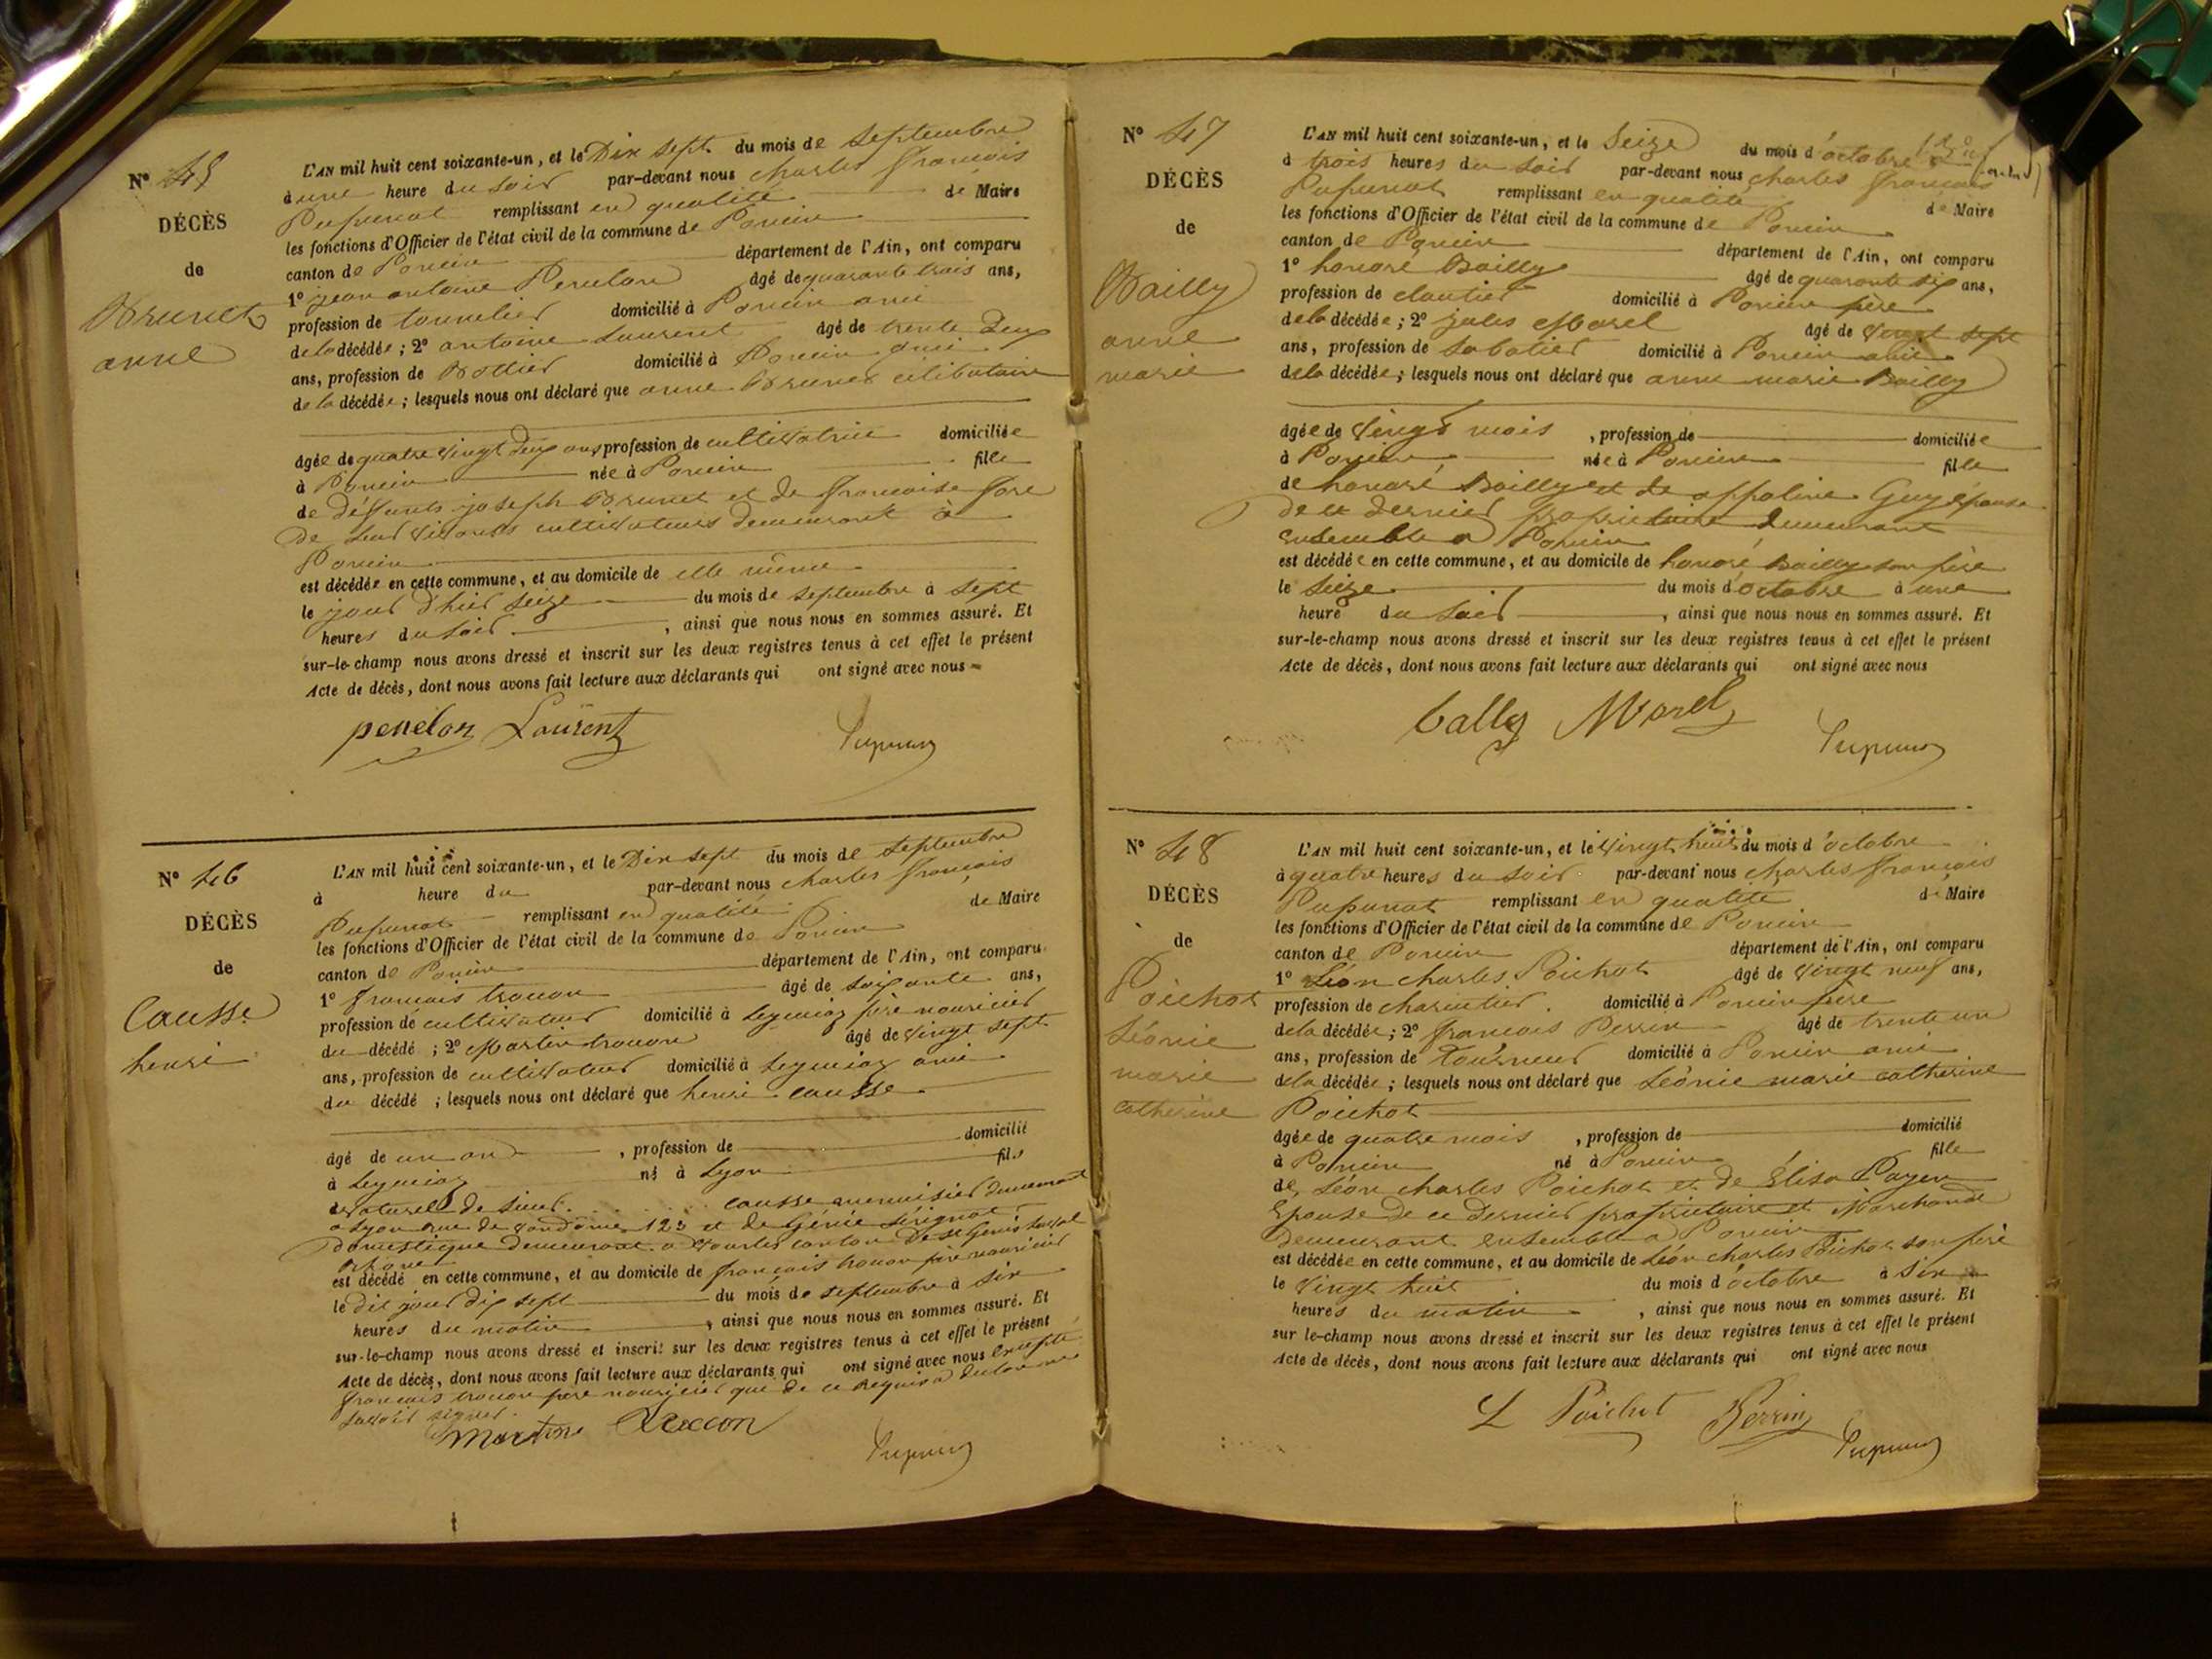 N° 45
DÉCÈS
de
Brunet
anne
L'AN mil huit cent soixante-un, et le Dix sept du mois de septembre
à une heure du soir par-devant nous charles françois
Pupunat remplissant en qualité de Maire
les fonctions d'Officier de l'état civil de la commune de Poncin
canton de Poncin département de l'Ain, ont comparu
1° jean antoine Penelon âgé de quarante trois ans,
profession de tonnelier domicilié à Poncin ami
de la décédée; 2° antoine Laurent âgé de trente deux
ans, profession de Bottier domicilié à Poncin ami
de la décédée; lesquels nous ont déclaré que anne Brunet célibataire
âgée de quatre vingt deux ans profession de cultivatrice domiciliée
à Poncin née à Poncin fille
de défunts joseph Brunet et de françoise
de leur vivants cultivateurs demeurant à
Poncin
est décédée en cette commune, et au domicile de elle même
le jour d'hier seize du mois de septembre à sept
heures du soir, ainsi que nous nous en sommes assuré. Et
sur-le-champ nous avons dressé et inscrit sur les deux registres tenus à cet effet le présent
Acte de décès, dont nous avons fait lecture aux déclarants qui ont signé avec nous
penelon Laurent Pupunat
N° 46
DÉCÈS
de
Causse
henri
L'AN mil huit cent soixante-un, et le Dix sept du mois de septembre
à heure du par-devant nous charles françois
Pupunat remplissant en qualité de Maire
les fonctions d'Officier de l'état civil de la commune de Poncin
canton de Poncin département de l'Ain, ont comparu
1° françois trocon âgé de soixante ans,
profession de cultivateur domicilié à Leymiaz père nouricier
du décédé; 2° Martin trocon âgé de vingt sept
ans, profession de cultivateur domicilié à Leymiaz ami
du décédé; lesquels nous ont déclaré que henri causse
âgé de un an, profession de domicilié
à Leymiaz né à Lyon fils
naturel de sieur causse menuisier demeurant
à Lyon rue de vandôme 123 et de Génie
domestique demeurant à Vourles canton de st Genis Laval
Rhône
est décédé en cette commune, et au domicile de françois trocon père nouricier
le dit jour dix sept du mois de septembre à six
heures du matin, ainsi que nous nous en sommes assuré. Et
sur-le-champ nous avons dressé et inscrit sur les deux registres tenus à cet effet le présent
Acte de décès, dont nous avons fait lecture aux déclarants qui ont signé avec nous excepté
françois trocon père nouricier que de ce requis a déclaré ne
savoir signer.
Martin trocon Pupunat
N° 47
DÉCÈS
de
Bailly
anne
marie
L'AN mil huit cent soixante-un, et le Seize du mois d'octobre
à trois heures du soir par-devant nous charles françois
Pupunat remplissant en qualité de Maire
les fonctions d'Officier de l'état civil de la commune de Poncin
canton de Poncin département de l'Ain, ont comparu
1° honoré Bailly âgé de quarante six ans,
profession de cloutier domicilié à Poncin père
de la décédée; 2° jules Morel âgé de vingt sept
ans, profession de sabotier domicilié à Poncin ami
de la décédée; lesquels nous ont déclaré que anne marie Bailly
âgée de vingt mois, profession de domiciliée
à Poncin née à Poncin fille
de honoré Bailly et de appoline Guy épouse
de ce dernier propriétaire demeurant
ensemble a Poncin
est décédée en cette commune, et au domicile de honoré Bailly son père
le seize du mois d'octobre à une
heure du soir, ainsi que nous nous en sommes assuré. Et
sur-le-champ nous avons dressé et inscrit sur les deux registres tenus à cet effet le présent
Acte de décès, dont nous avons fait lecture aux déclarants qui ont signé avec nous
bally Morel Pupunat
N° 48
DÉCÈS
de
Poichot
Léonie
marie
catherine
L'AN mil huit cent soixante-un, et le vingt huit du mois d'octobre
à quatre heures du soir par-devant nous charles françois
Pupunat remplissant en qualité de Maire
les fonctions d'Officier de l'état civil de la commune de Poncin
canton de Poncin département de l'Ain, ont comparu
1° Léon charles Poichot âgé de vingt neuf ans,
profession de charcutier domicilié à Poncin père
de la décédée; 2° françois Perrin âgé de trente un
ans, profession de Tourneur domicilié à Poncin ami
de la décédée; lesquels nous ont déclaré que Léonie marie catherine
Poichot
âgée de quatre mois, profession de domicilié
à Poncin né à Poncin fille
de Léon charles Poichot et de Élisa Payen
Épouse de ce dernier propriétaire et Marchand
demeurant ensemble a Poncin
est décédée en cette commune, et au domicile de Léon charles Poichot son père
le vingt huit du mois d'octobre à six
heures du matin, ainsi que nous nous en sommes assuré. Et
sur le-champ nous avons dressé et inscrit sur les deux registres tenus à cet effet le présent
Acte de décès, dont nous avons fait lecture aux déclarants qui ont signé avec nous
L Poichot Perrin Pupunat